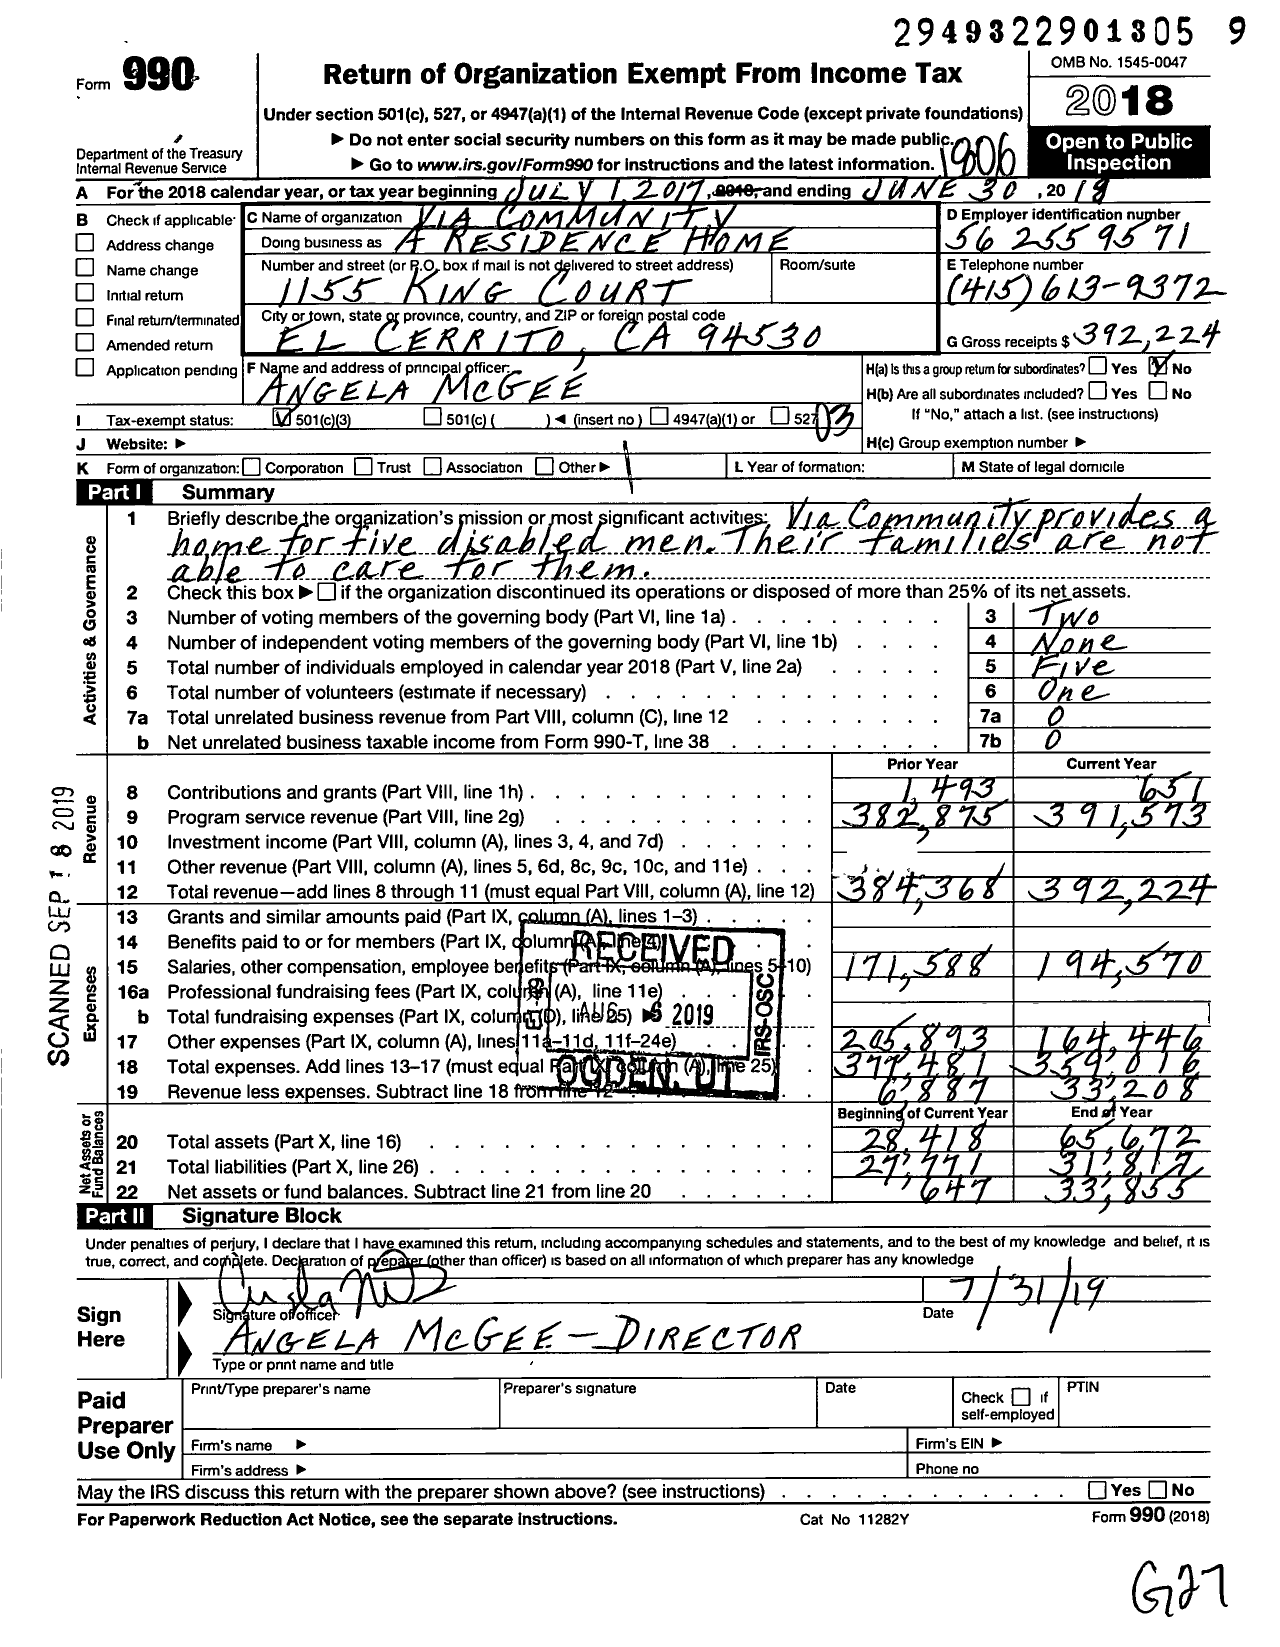 2949322901305 9
Form 990
Return of Organization Exempt From Income Tax
OMB No. 1545-0047
2018
Under section 501(c), 527, or 4947(a)(1) of the Internal Revenue Code (except private foundations)
▶ Do not enter social security numbers on this form as it may be made public.
▶ Go to www.irs.gov/Form990 for instructions and the latest information.
1806
Open to Public Inspection
Department of the Treasury
Internal Revenue Service
A For the 2018 calendar year, or tax year beginning JULY 1 2017, 2018, and ending JUNE 30, 2018
B Check if applicable
Address change
Name change
Initial return
Final return/terminated
Amended return
Application pending
C Name of organization VIA COMMUNITY
Doing business as A RESIDENCE HOME
Number and street (or P.O. box if mail is not delivered to street address) Room/suite
1155 KING COURT
City or town, state or province, country, and ZIP or foreign postal code
EL CERRITO, CA 94530
D Employer identification number
56 2559571
E Telephone number
(415) 613-9372
G Gross receipts $ 392,224
F Name and address of principal officer:
ANGELA McGEE
H(a) Is this a group return for subordinates? Yes No
H(b) Are all subordinates included? Yes No
If "No," attach a list. (see instructions)
I Tax-exempt status: 501(c)(3) 501(c) ( ) ◀ (insert no) 4947(a)(1) or 527 03
J Website: ▶
H(c) Group exemption number ▶
K Form of organization: Corporation Trust Association Other ▶
L Year of formation:
M State of legal domicile
Part I Summary
Activities & Governance
1 Briefly describe the organization's mission or most significant activities: Via Community provides a
home for five disabled men. Their families are not
able to care for them.
2 Check this box ▶ if the organization discontinued its operations or disposed of more than 25% of its net assets.
3 Number of voting members of the governing body (Part VI, line 1a) 3 Two
4 Number of independent voting members of the governing body (Part VI, line 1b) 4 None
5 Total number of individuals employed in calendar year 2018 (Part V, line 2a) 5 Five
6 Total number of volunteers (estimate if necessary) 6 One
7a Total unrelated business revenue from Part VIII, column (C), line 12 7a 0
b Net unrelated business taxable income from Form 990-T, line 38 7b 0
Prior Year Current Year
Revenue
8 Contributions and grants (Part VIII, line 1h) 1,493 651
9 Program service revenue (Part VIII, line 2g) 382,875 391,573
10 Investment income (Part VIII, column (A), lines 3, 4, and 7d)
11 Other revenue (Part VIII, column (A), lines 5, 6d, 8c, 9c, 10c, and 11e)
12 Total revenue—add lines 8 through 11 (must equal Part VIII, column (A), line 12) 384,368 392,224
Expenses
13 Grants and similar amounts paid (Part IX, column (A), lines 1–3)
14 Benefits paid to or for members (Part IX, column (A), line 4)
15 Salaries, other compensation, employee benefits (Part IX, column (A), lines 5–10) 171,588 194,570
16a Professional fundraising fees (Part IX, column (A), line 11e)
b Total fundraising expenses (Part IX, column (D), line 25) ▶
17 Other expenses (Part IX, column (A), lines 11a–11d, 11f–24e) 205,893 164,446
18 Total expenses. Add lines 13–17 (must equal Part IX, column (A), line 25) 377,481 359,016
19 Revenue less expenses. Subtract line 18 from line 12 6,887 33,208
RECEIVED
AUG 5 2019
IRS-OSC
OGDEN, UT
SCANNED SEP 18 2019
Net Assets or Fund Balances
Beginning of Current Year End of Year
20 Total assets (Part X, line 16) 28,418 65,672
21 Total liabilities (Part X, line 26) 27,771 31,817
22 Net assets or fund balances. Subtract line 21 from line 20 647 33,855
Part II Signature Block
Under penalties of perjury, I declare that I have examined this return, including accompanying schedules and statements, and to the best of my knowledge and belief, it is
true, correct, and complete. Declaration of preparer (other than officer) is based on all information of which preparer has any knowledge
Sign Here
Signature of officer
Date 7/31/19
ANGELA McGEE — DIRECTOR
Type or print name and title
Paid Preparer Use Only
Print/Type preparer's name Preparer's signature Date Check if self-employed PTIN
Firm's name ▶ Firm's EIN ▶
Firm's address ▶ Phone no
May the IRS discuss this return with the preparer shown above? (see instructions) Yes No
For Paperwork Reduction Act Notice, see the separate instructions. Cat No 11282Y Form 990 (2018)
G27